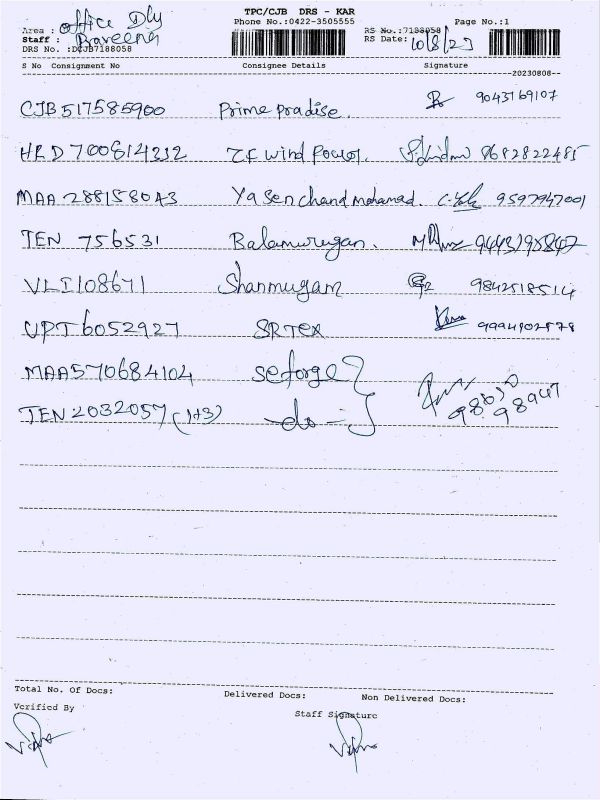 TPC/CJB DRS - KAR
Area : office Dly Phone No.:0422-3505555 RS No.:7188058 Page No.:1
Staff : Praveena RS Date: 10/8/23
DRS No. :DCJB7188058
S No Consignment No Consignee Details Signature
--20230808--
CJB 517585900 Prime pradise. 9043169107
HRD 700814232 ZF wind Power. 8682822485
MAA 288158043 Yasenchand mohamad. 9597947001
TEN 756531 Balamurugan.
VLI108671 Shanmugam 9842518514
UPT 6052927 SRTEX
MAA570684104 seforge }
TEN2032057 (1+3) -do-
Total No. Of Docs: Delivered Docs: Non Delivered Docs:
Verified By Staff Signature